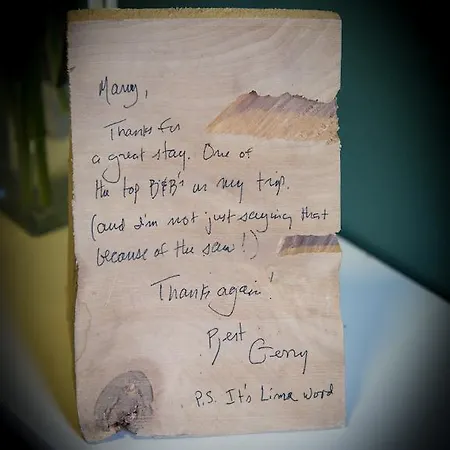 Mary,
Thanks for
a great stay. One of
the top B&B's on my trip.
(and I'm not just saying that
because of the saw!)
Thanks again!
Best
Gerry
P.S. It's Lima Wood